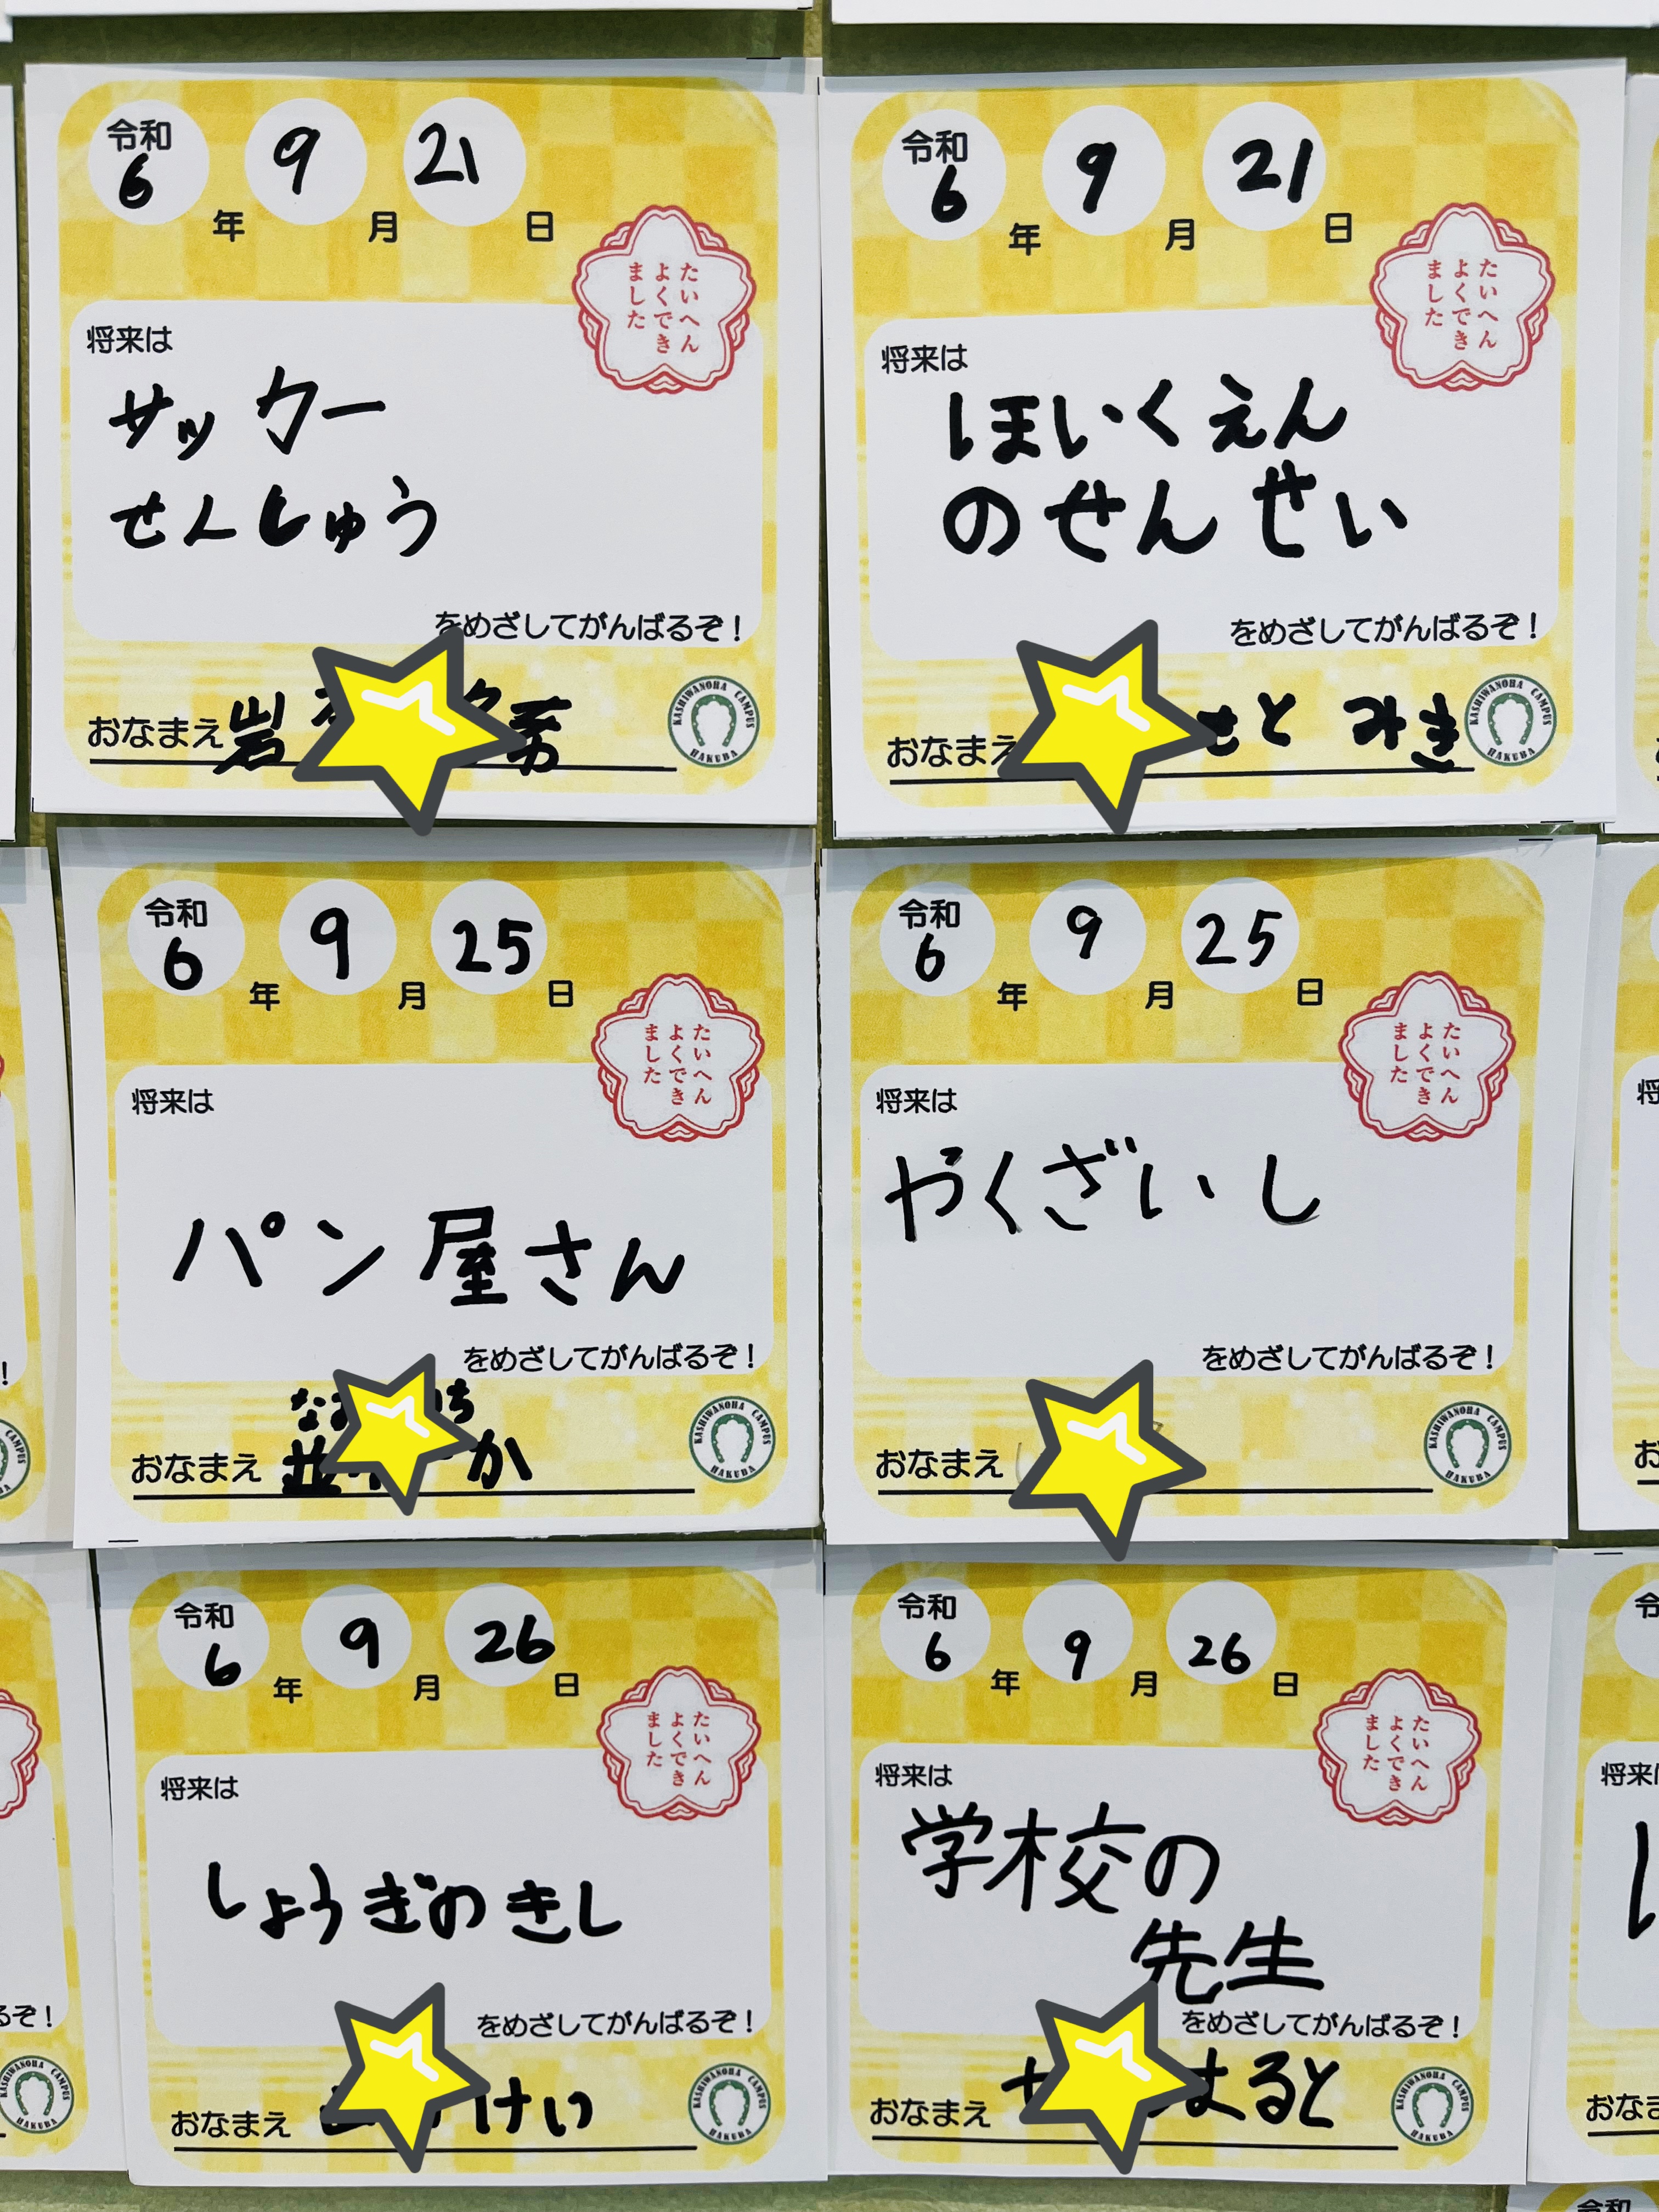 令和
6年9月21日
たいへん
よくでき
ました
将来は
サッカー
せんしゅう
をめざしてがんばるぞ！
おなまえ 岩
KASHIWANOHA CAMPUS
HAKUBA
令和
6年9月21日
たいへん
よくでき
ました
将来は
ほいくえん
のせんせい
をめざしてがんばるぞ！
おなまえ さと みき
KASHIWANOHA CAMPUS
HAKUBA
令和
6年9月25日
たいへん
よくでき
ました
将来は
パン屋さん
をめざしてがんばるぞ！
おなまえ か
KASHIWANOHA CAMPUS
HAKUBA
令和
6年9月25日
たいへん
よくでき
ました
将来は
やくざいし
をめざしてがんばるぞ！
おなまえ
KASHIWANOHA CAMPUS
HAKUBA
令和
6年9月26日
たいへん
よくでき
ました
将来は
しょうぎのきし
をめざしてがんばるぞ！
おなまえ けい
KASHIWANOHA CAMPUS
HAKUBA
令和
6年9月26日
たいへん
よくでき
ました
将来は
学校の
先生
をめざしてがんばるぞ！
おなまえ はると
KASHIWANOHA CAMPUS
HAKUBA